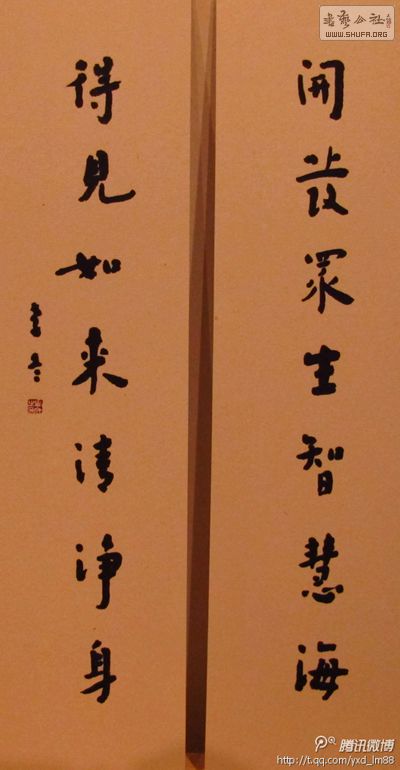 開發眾生智慧海
得見如来清淨身
書藝公社
WWW.SHUFA.ORG
腾讯微博
http://t.qq.com/yxd_lm88